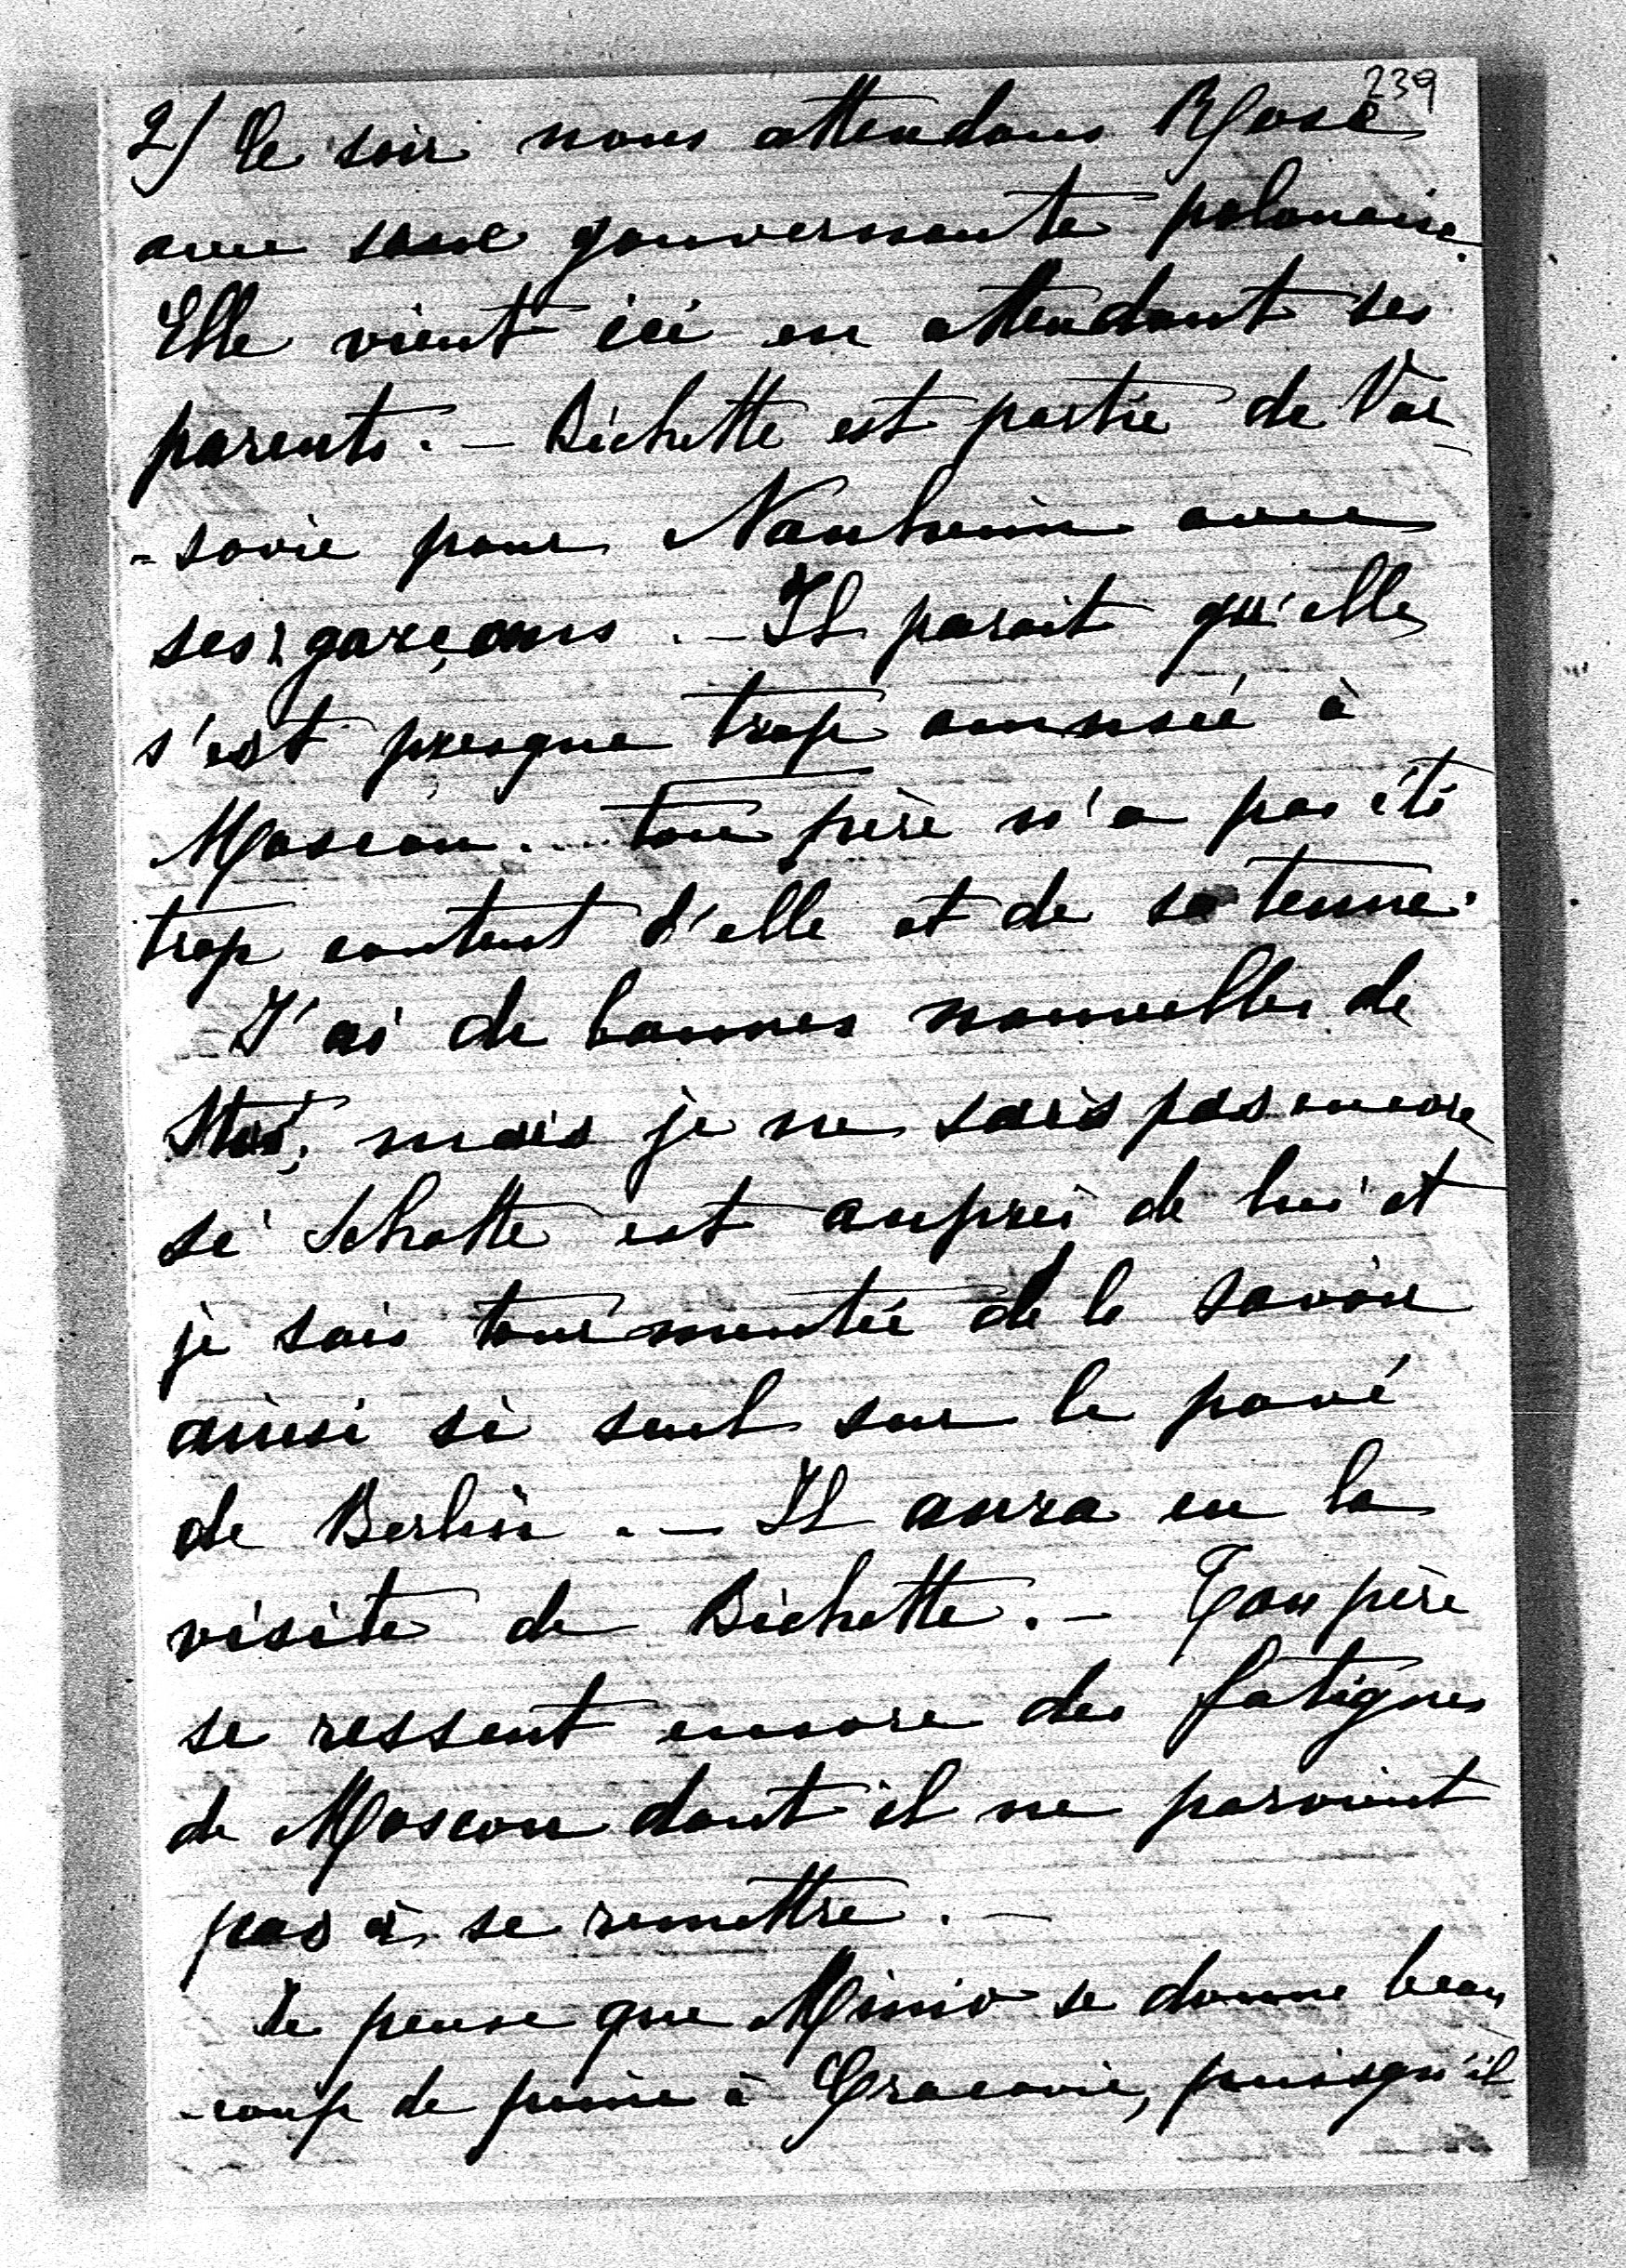 239
2) Ce soir nous attendons Rose
avec sa gouvernante polonaise.
Elle vient ici en attendant ses
parents. – Bichette est partie de Var
-sovie pour Nauheim avec
ses garçons. – Il parait qu'elle
s'est presque trop amusée à
Moscou. ton père n'a pas été
trop content d'elle et de sa tenue.
J'ai de bonnes nouvelles de
mais je ne sais pas encore
si est auprès de lui et
je suis tourmentée de le savoir
ainsi si seul sur le pavé
de Berlin. – Il aura eu la
visite de Bichette. – Ton père
se ressent encore des fatigues
de Moscou dont il ne parvient
pas à se remettre. –
Je pense que se donne beau
-coup de peine à Cracovie, puisqu'il